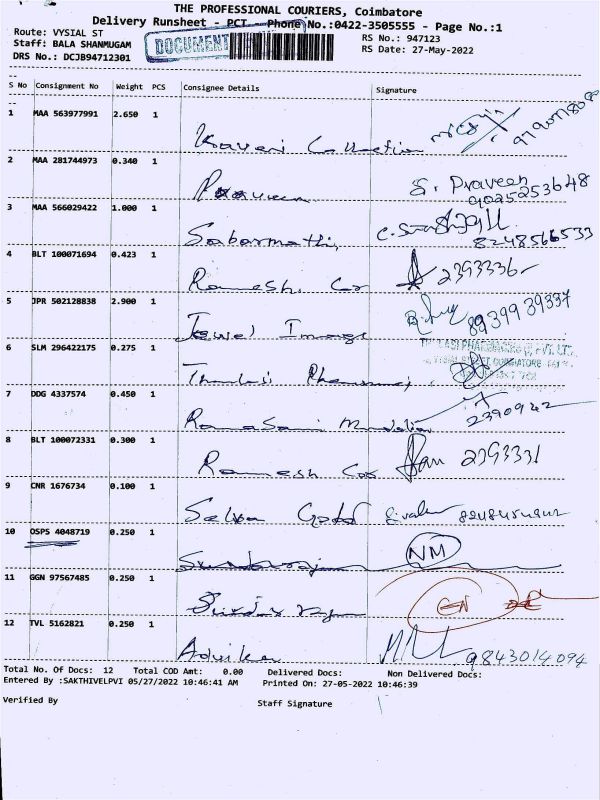 THE PROFESSIONAL COURIERS, Coimbatore
Delivery Runsheet - PCT - Phone No.:0422-3505555 - Page No.:1
Route: VYSIAL ST
RS No.: 947123
Staff: BALA SHANMUGAM
DOCUMENT
RS Date: 27-May-2022
DRS No.: DCJB94712301
S No Consignment No Weight PCS Consignee Details Signature
1 MAA 563977991 2.650 1
Kaveri Collection
2 MAA 281744973 0.340 1
Praveen S. Praveen
9025253648
3 MAA 566029422 1.000 1
Sabarmathi,
8248566533
4 BLT 100071694 0.423 1
Ramesh. Cos 2393336
5 JPR 502128838 2.900 1
Jewel Image 8939939337
6 SLM 296422175 0.275 1
Thulasi Pharmacy
7 DDG 4337574 0.450 1
Ramasami Mudaliar 2390942
8 BLT 100072331 0.300 1
Ramesh Cos 2393331
9 CNR 1676734 0.100 1
Selva Gold
10 OSPS 4048719 0.250 1
NM
11 GGN 97567485 0.250 1
12 TVL 5162821 0.250 1
Advika 9843014094
Total No. Of Docs: 12 Total COD Amt: 0.00 Delivered Docs: Non Delivered Docs:
Entered By :SAKTHIVELPVI 05/27/2022 10:46:41 AM Printed On: 27-05-2022 10:46:39
Verified By Staff Signature